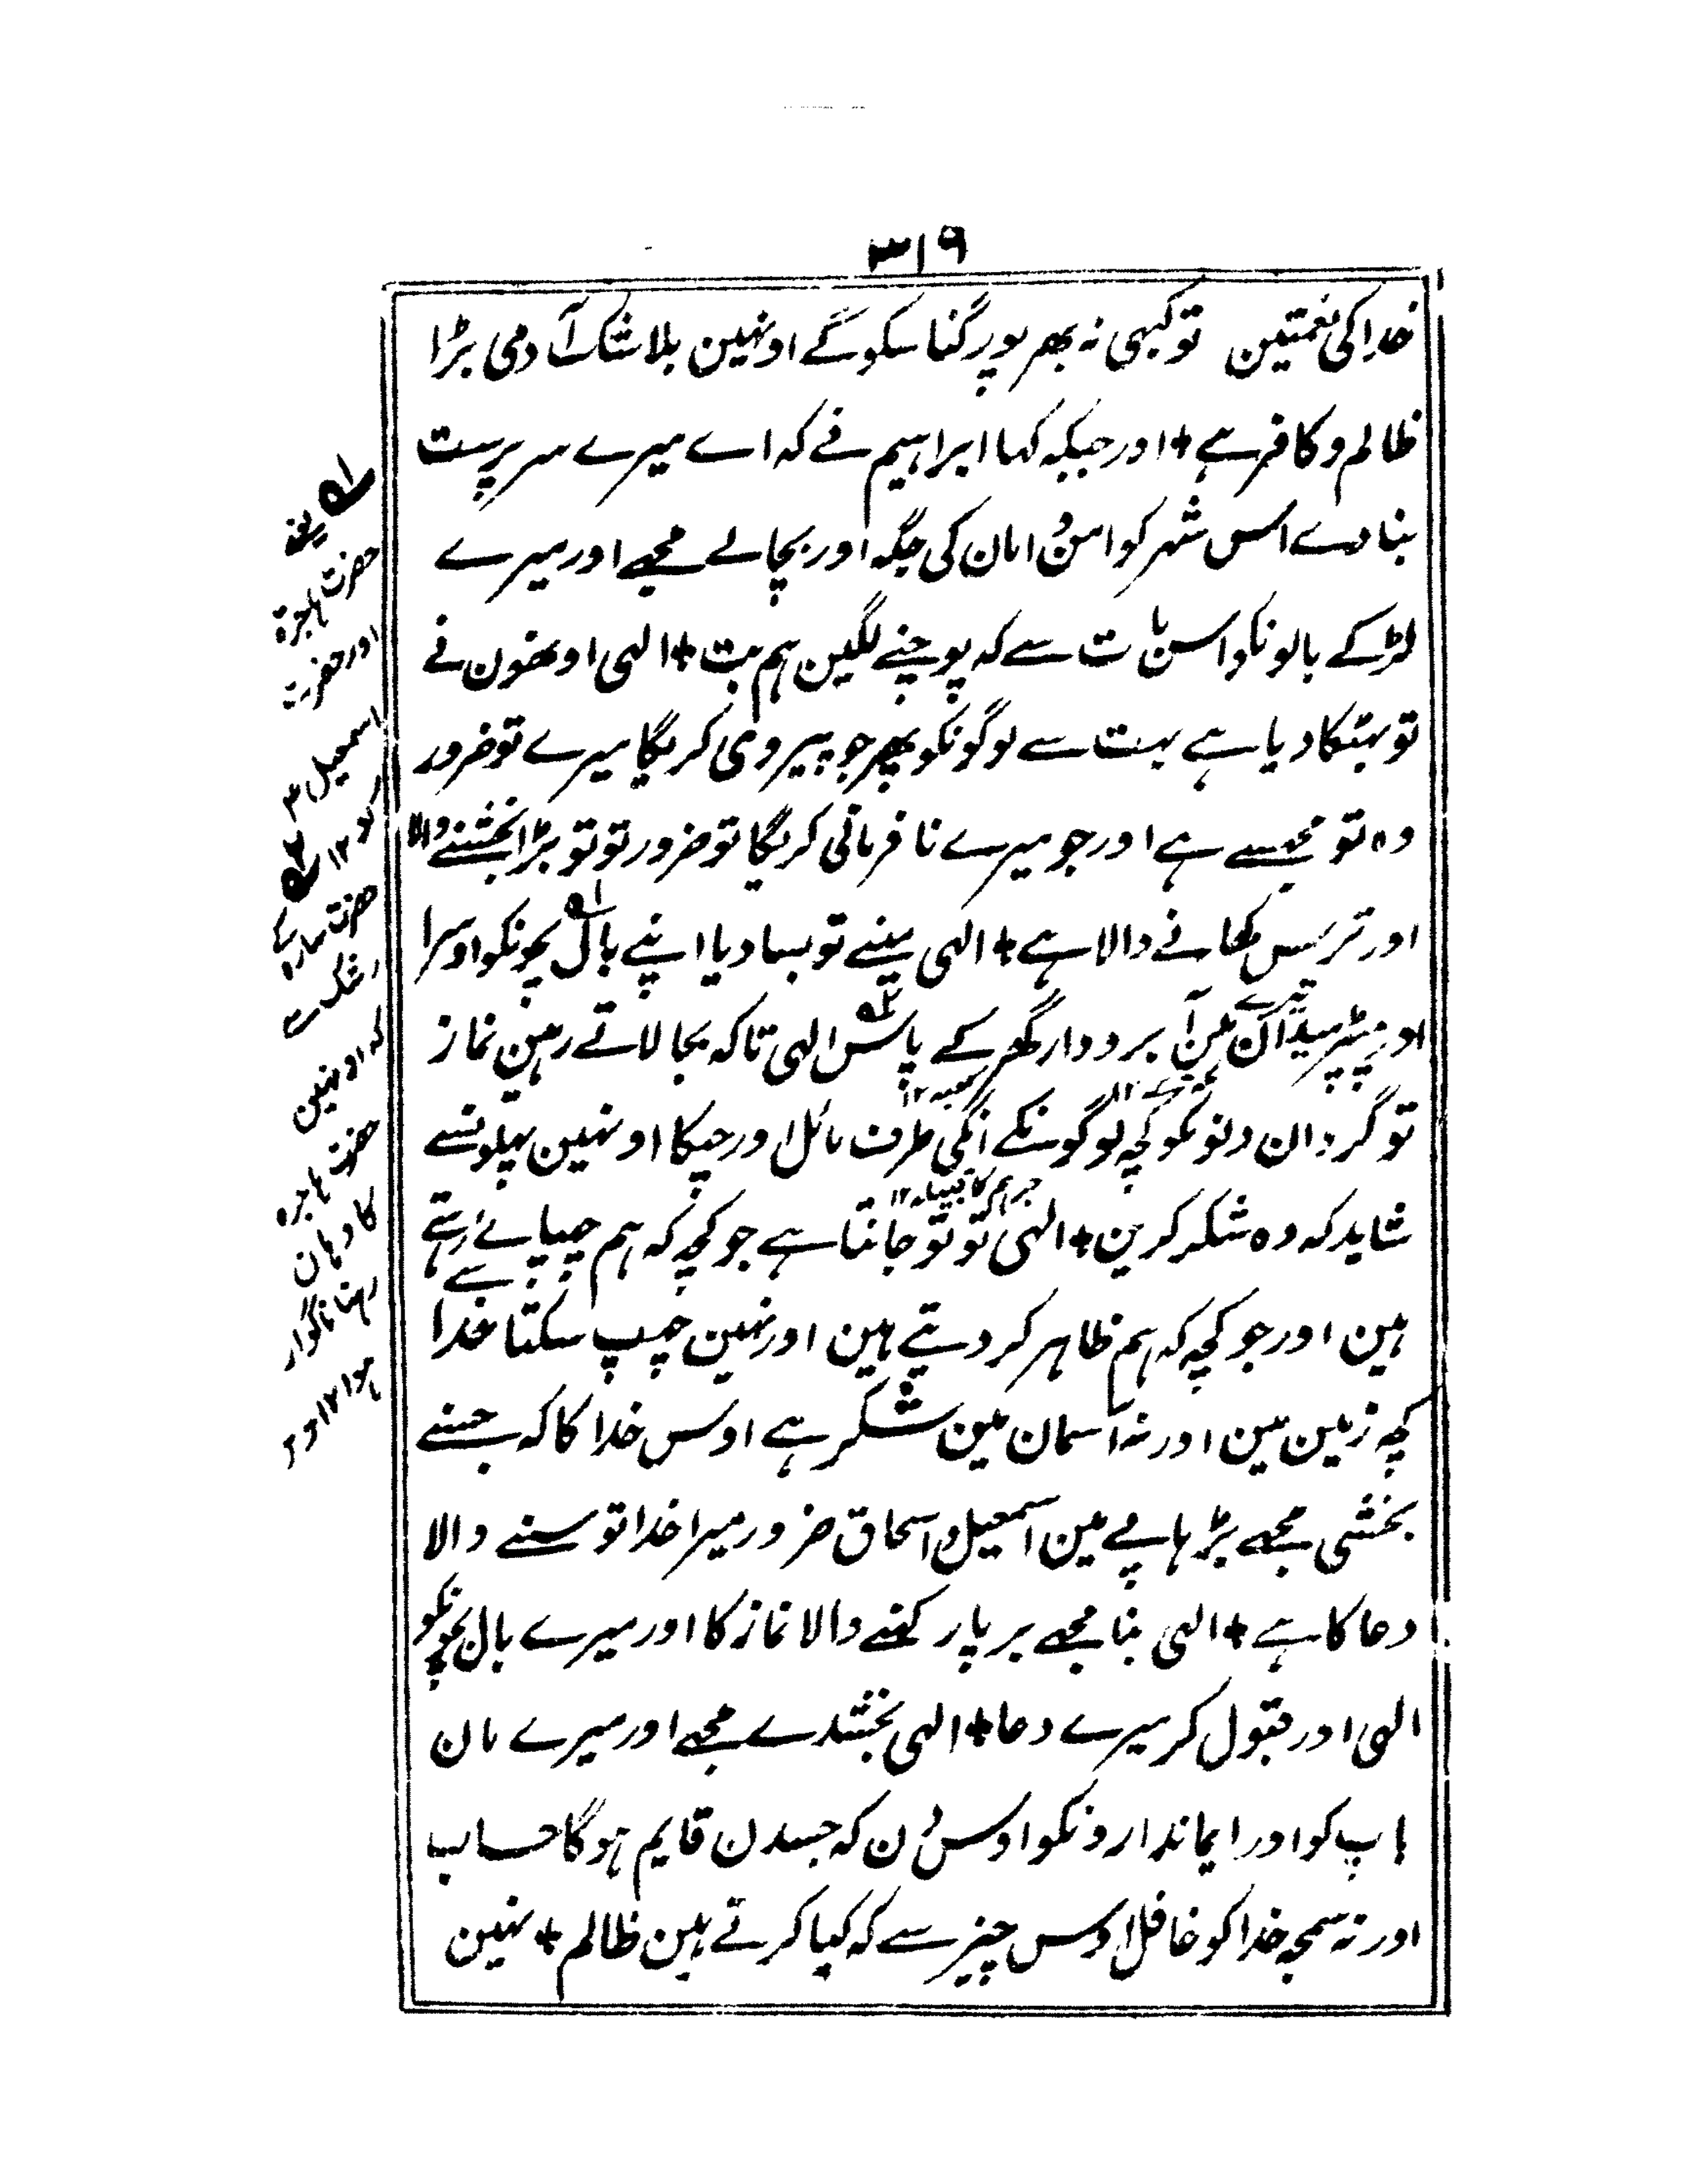 ۳۱۹
خدا کی نعمتین تو کبہی نہ بھر پور گنا سکو گے اونہین بلا شک آدمی بڑا
ظالم و کافر ہے + اور جبکہ کہا ابراہیم نے کہ اے میرے سرپرست
بنا دے اس شہر کو امن و امان کی جگہ اور بچا لے مجہے اور میرے
لڑکے بالونکو اس بات سے کہ پوجنے لگین ہم بت + الہی اونھون نے
تو بہٹکا دیا ہے بہت سے لوگونکو پھر جو پیروی کریگا میرے تو ضرور
وہ تو مجہسے ہے اور جو میرے نا فرمانی کریگا تو ضرور تو تو بڑا بخشنے والا
اور ترس کھانے والا ہے + الہی مینے تو بسا دیا اپنے بال بچونکو اوسرا
اور پٹپر میدان مین تیرے آبرو دار گھر کے پاس الہی تاکہ بجا لاتے رہین نماز
کعبہ ۱۲
تو گردان دنونکو کچہ لوگونکے انکی طرف مائل اور چپکا اونہین پہلونسے
جرہم کا قبیلہ ۱۲
شاید کہ وہ شکر کرین + الہی تو تو جانتا ہے جو کچہ کہ ہم چہپائے رہتے
ہین اور جو کچہ کہ ہم ظاہر کر دیتے ہین اور نہین چہپ سکتا خدا سے
کچہ زمین مین اور نہ آسمان مین شکر ہے اوس خدا کا کہ جسنے
بخشی مجہے بڑہاپے مین اسمعیل و اسحاق ضرور میرا خدا تو سننے والا
دعا کا ہے + الہی بنا مجہے برپا رکہنے والا نماز کا اور میرے بال بچونکو
الہی اور قبول کر میرے دعا + الہی بخشدے مجہے اور میرے مان
باپ کو اور ایماندارونکو اوس دن کہ جسدن قایم ہوگا حساب
اور نہ سمجہ خدا کو غافل اوس چیز سے کہ کیا کرتے ہین ظالم + نہین
۱ یعنے
حضرت ہاجرہ
اور حضرت
اسمعیل ۴
کو ۱۲ ۲
حضرت سارہ کے
رشک سے
کہ اونہین
حضرت ہاجرہ
کا وہان
رہنا ناگوار
ہوا ۱۲